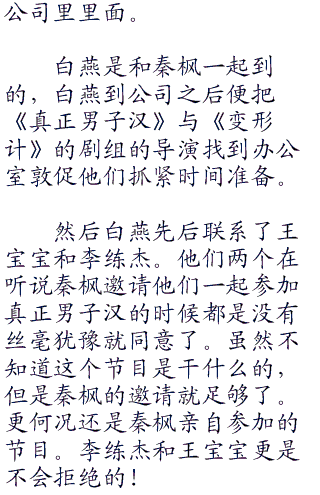 公司里里面。
白燕是和秦枫一起到
的，白燕到公司之后便把
《真正男子汉》与《变形
计》的剧组的导演找到办公
室敦促他们抓紧时间准备。
然后白燕先后联系了王
宝宝和李练杰。他们两个在
听说秦枫邀请他们一起参加
真正男子汉的时候都是没有
丝毫犹豫就同意了。虽然不
知道这个节目是干什么的，
但是秦枫的邀请就足够了。
更何况还是秦枫亲自参加的
节目。李练杰和王宝宝更是
不会拒绝的！